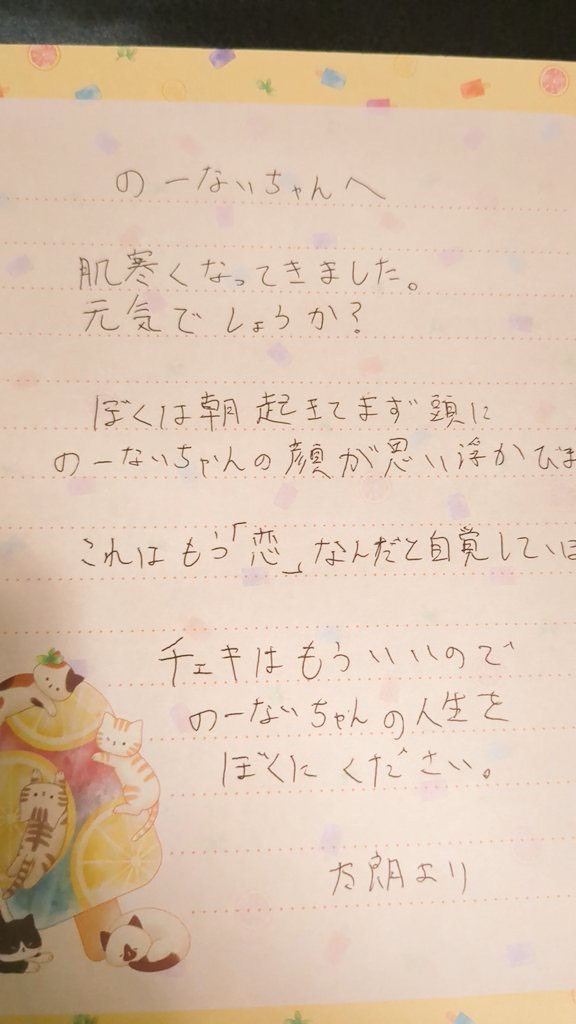 のーないちゃんへ
肌寒くなってきました。
元気でしょうか?
ぼくは朝起きてまず頭に
のーないちゃんの顔が思い浮かびま
これはもう「恋」なんだと自覚していま
チェキはもういいので
のーないちゃんの人生を
ぼくにください。
太朗より